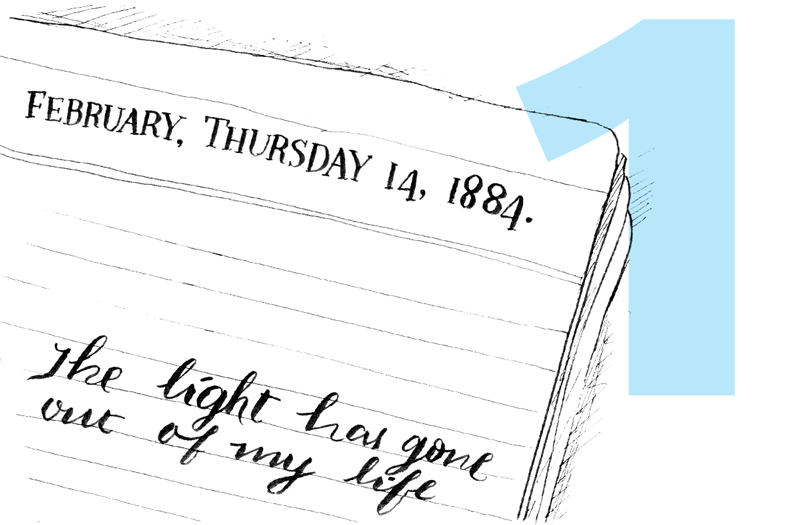 1
FEBRUARY, THURSDAY 14, 1884.
The light has gone
out of my life